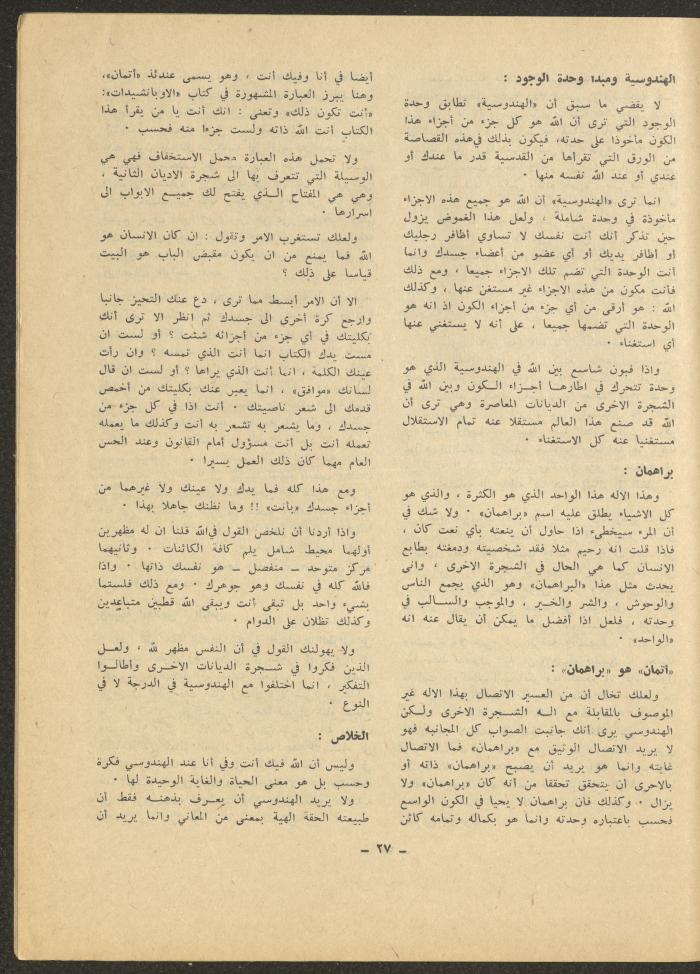 الهندوسية ومبدا وحدة الوجود :
لا يفضي ما سبق أن «الهندوسية» تطابق وحدة
الوجود التي ترى أن الله هو كل جزء من أجزاء هذا
الكون مأخوذا على حدته، فيكون بذلك في هذه القصاصة
من الورق التي تقرأها من القدسية قدر ما عندك أو
عندي أو عند الله نفسه منها ٠
انما ترى «الهندوسية» أن الله هو جميع هذه الاجزاء
مأخوذة في وحدة شاملة ، ولعل هذا الغموض يزول
حين تذكر أنك أنت نفسك لا تساوي أظافر رجليك
أو أظافر يديك أو أي عضو من أعضاء جسدك وانما
أنت الوحدة التي تضم تلك الاجزاء جميعا ، ومع ذلك
فأنت مكون من هذه الاجزاء غير مستغن عنها ، وكذلك
الله : هو أرقى من أي جزء من أجزاء الكون اذ انه هو
الوحدة التي تضمها جميعا ، على أنه لا يستغني عنها
أي استغناء ٠
واذا فبون شاسع بين الله في الهندوسية الذي هو
وحدة تتحرك في اطارها أجزاء الكون وبين الله في
الشجرة الاخرى من الديانات المعاصرة وهي ترى أن
الله قد صنع هذا العالم مستقلا عنه تمام الاستقلال
مستغنيا عنه كل الاستغناء ٠
براهمان :
وهذا الاله هذا الواحد الذي هو الكثرة ، والذي هو
كل الاشياء يطلق عليه اسم «براهمان» ٠ ولا شك في
أن المرء سيخطىء اذا حاول أن ينعته بأي نعت كان ،
فاذا قلت انه رحيم مثلا فقد شخصيته ودمغته بطابع
الانسان كما هي الحال في الشجرة الاخرى ، وانى
يحدث مثل هذا «البراهمان» وهو الذي يجمع الناس
والوحوش ، والشر والخير ، والموجب والسالب في
وحدته ، فلعل اذا أفضل ما يمكن أن يقال عنه انه
«الواحد» ٠
«أتمان» هو «براهمان» :
ولعلك تخال أن من العسير الاتصال بهذا الاله غير
الموصوف بالمقابلة مع اله الشجرة الاخرى ولكن
الهندوسي يرى أنك جانبت الصواب كل المجانبه فهو
لا يريد الاتصال الوثيق مع «براهمان» فما الاتصال
غايته وانما هو يريد أن يصبح «براهمان» ذاته أو
بالاحرى أن يتحقق تحققا من أنه كان «براهمان» ولا
يزال ٠ وكذلك فان براهمان لا يحيا في الكون الواسع
فحسب باعتباره وحدته وانما هو بكماله وتمامه كائن
أيضا في أنا وفيك أنت ، وهو يسمى عندئذ «أتمان»،
وهنا يبرز العبارة المشهورة في كتاب «الاوبانشيدات»:
«أنت تكون ذلك» وتعنى : انك أنت يا من يقرأ هذا
الكتاب أنت الله ذاته ولست جزءا منه فحسب ٠
ولا تحمل هذه العبارة محمل الاستخفاف فهي هي
الوسيلة التي تتعرف بها الى شجرة الاديان الثانية ،
وهي هي المفتاح الذي يفتح لك جميع الابواب الى
اسرارها ٠
ولعلك تستغرب الامر وتقول : ان كان الانسان هو
الله فما يمنع من ان يكون مقبض الباب هو البيت
قياسا على ذلك ؟
الا أن الامر أبسط مما ترى ، دع عنك التحيز جانبا
وارجع كرة أخرى الى جسدك ثم انظر الا ترى أنك
بكليتك في أي جزء من أجزائه شئت ؟ أو لست ان
مست يدك الكتاب انما أنت الذي تمسه ؟ وان رأت
عينك الكلمة ، انما أنت الذي يراها ؟ أو لست ان قال
لسانك «موافق» ، انما يعبر عنك بكليتك من أخمص
قدمك الى شعر ناصيتك ٠ أنت اذا في كل جزء من
جسدك ، وما يشعر به تشعر به أنت وكذلك ما يعمله
تعمله أنت بل أنت مسؤول أمام القانون وعند الحس
العام مهما كان ذلك العمل يسيرا ٠
ومع هذا كله فما يدك ولا عينك ولا غيرهما من
أجزاء جسدك «بأنت» !! وما نظنك جاهلا بهذا ٠
واذا أردنا أن نلخص القول في الله قلنا ان له مظهرين
أولهما محيط شامل يلم كافة الكائنات ٠ وثانيهما
مركز متوحد – منفصل – هو نفسك ذاتها ٠ واذا
فالله كله في نفسك وهو جوهرك ٠ ومع ذلك فلستما
بشيء واحد بل تبقى أنت ويبقى الله قطبين متباعدين
وكذلك تظلان على الدوام ٠
ولا يهولنك القول في أن النفس مظهر لله ، ولعل
الذين فكروا في شجرة الديانات الاخرى وأطالوا
التفكير ، انما اختلفوا مع الهندوسية في الدرجة لا في
النوع ٠
الخلاص :
وليس أن الله فيك أنت وفي أنا عند الهندوسي فكرة
وحسب بل هو معنى الحياة والغاية الوحيدة لها ٠
ولا يريد الهندوسي أن يعرف بذهنه فقط أن
طبيعته الحقة الهية بمعنى من المعاني وانما يريد أن
– ٢٧ –